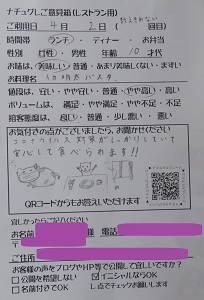 ナチュグしご意見箱(レストラン用)
ご利用日 4月 2日( 数えきれない 回目)
時間帯 ランチ・ディナー・お弁当
性別 女性・男性 年齢 10才代
お味は、美味しい・普通・あまり美味しくない・まずい
お料理名 明太パスタ
値段は、安い・やや安い・普通・やや高い・高い
ボリュームは、満足・やや満足・やや不足・不足
接客態度は、良い・普通・少し悪い・悪い
お気付きの点がございましたら、お聞かせください
コロナウイルス対策がしっかりしていて
安心して食べられます!!
QRコードからもお答えいただけます
宜しかったらご記入ください
お名前 様 電話
〒
ご住所
お客様の声をブログやHP等で公開して宜しいですか?
□公開を希望しない ☑イニシャルならOK
□名前付きでOK レ点でチェックお願いします